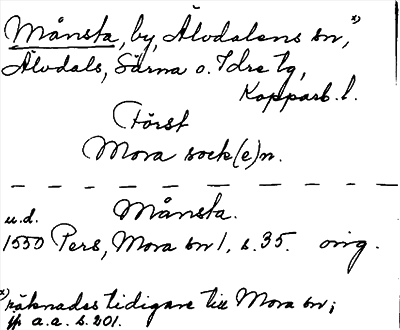 Månsta, by, Älvdalens sn,*)
Älvdals, Särna o. Idre tg,
Kopparb. l.
Först
Mora sock(e)n.
Månsta.
u.d.
1550 Pers, Mora sn 1, s. 35. orig.
*) räknades tidigare till Mora sn;
jfr a.a. s. 201.